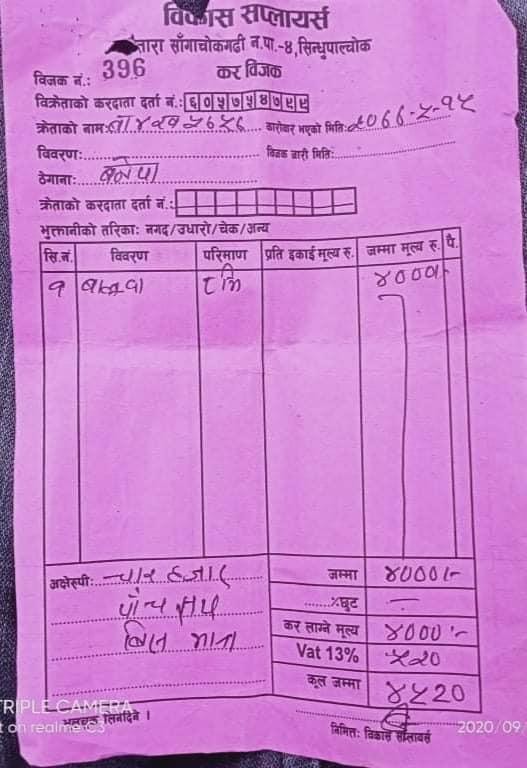 विकास सप्लायर्स
तारा साँगाचोकगढी न.पा.-४, सिन्धुपाल्चोक
विजक नं.: 396
कर विजक
विक्रेताको करदाता दर्ता नं.: ६०५७५४७९९
क्रेताको नाम: कारोबार भएको मिति: २०७७-५-१५
विवरण: विजक जारी मिति:
ठेगाना: बनेपा
क्रेताको करदाता दर्ता नं.:
भुक्तानीको तरिकाः नगद/उधारो/चेक/अन्य
सि.नं. विवरण परिमाण प्रति इकाई मूल्य रु. जम्मा मूल्य रु. पै.
१ ८ ४०००।-
अक्षेरुपीः चार हजार जम्मा ४०००।-
पाँच सय %छुट -
बिस मात्र कर लाग्ने मूल्य ४०००।-
Vat 13% ५२०
कूल जम्मा ४५२०
निमितः विकास सप्लायर्स
TRIPLE CAMERA
t on realme C3
2020/09/